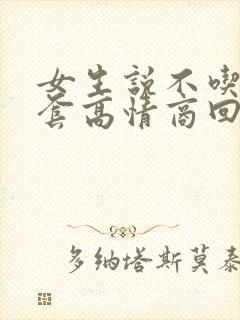 女生说不喫
套高情商回
多纳塔斯莫泰